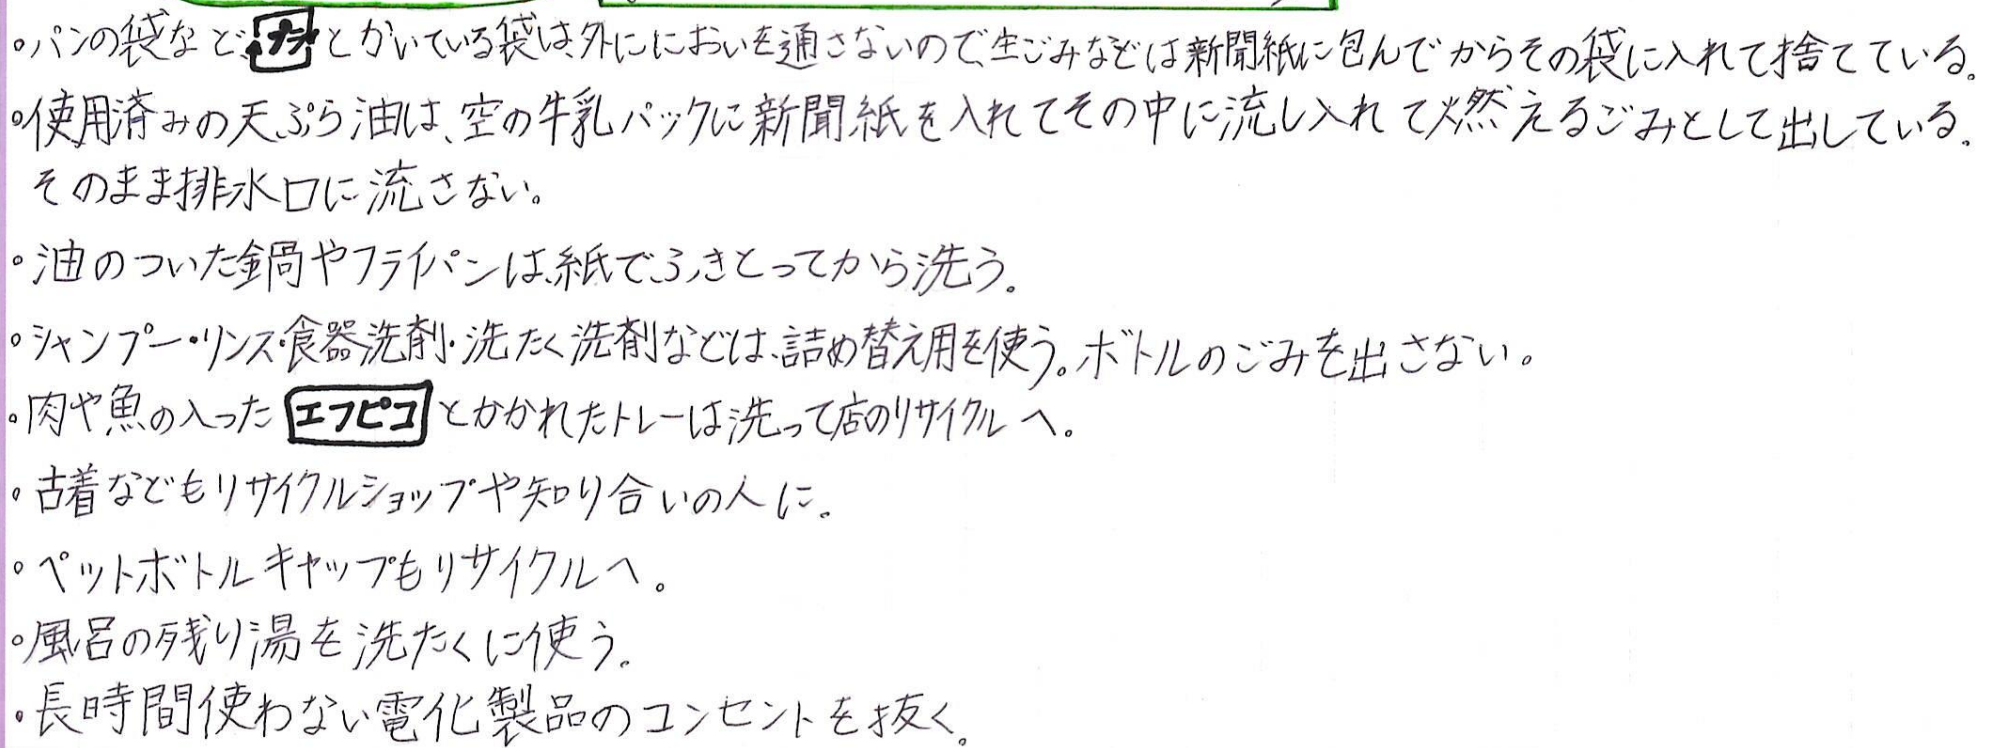 。パンの袋など、プラとかいている袋は、外ににおいを通さないので、生ごみなどは新聞紙に包んでからその袋に入れて捨てている。
。使用済みの天ぷら油は、空の牛乳パックに新聞紙を入れてその中に流し入れて燃えるごみとして出している。
そのまま排水口に流さない。
。油のついた鍋やフライパンは、紙でふきとってから洗う。
。シャンプー・リンス・食器洗剤・洗たく洗剤などは、詰め替え用を使う。ボトルのごみを出さない。
。肉や魚の入ったエフピコとかかれたトレーは洗って店のリサイクルへ。
。古着などもリサイクルショップや知り合いの人に。
。ペットボトルキャップもリサイクルへ。
。風呂の残り湯を洗たくに使う。
。長時間使わない電化製品のコンセントを抜く。